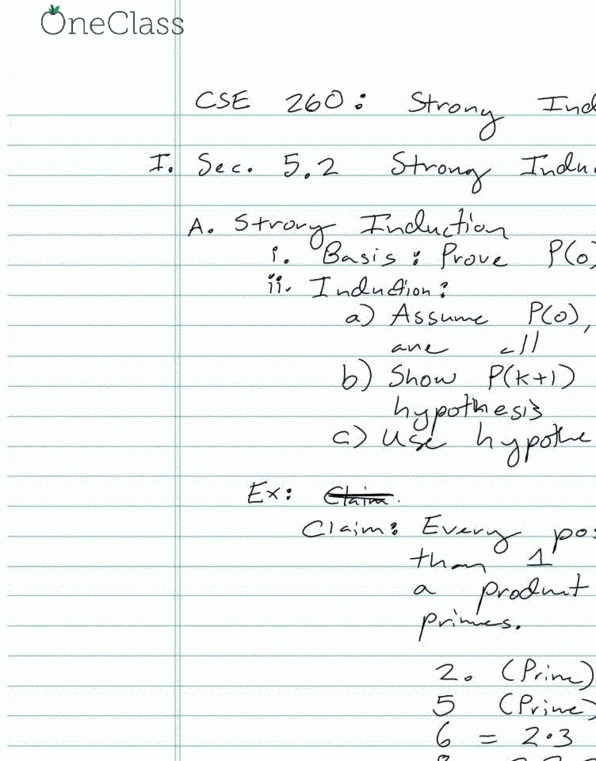 OneClass
CSE 260: Strong Ind
I. Sec. 5.2 Strong Indu
A. Strong Induction
i. Basis: Prove P(0)
ii. Induction:
a) Assume P(0),
are all
b) Show P(k+1)
hypothesis
c) Use hypothe
Ex: Claim.
Claim: Every pos
than 1
a product
primes.
2. (Prime)
5 (Prime)
6 = 2·3